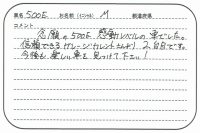 車名 500E お名前(イニシャル) M 都道府県
コメント
念願の500E 感動レベルの車でした。
信頼できるガレージカレントさんより、2台目です。
今後も楽しい車を見つけて下さい!